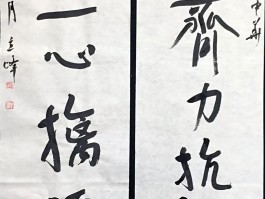 中華
齊力抗
一心擒
月立峰